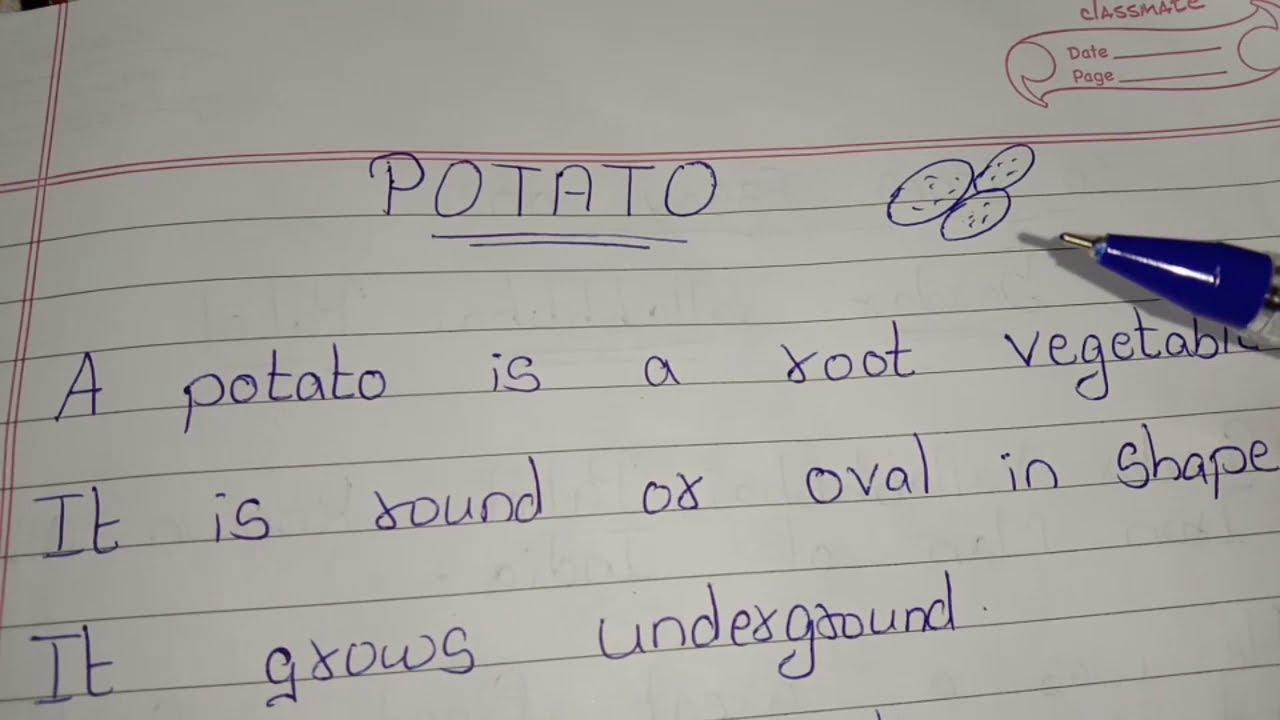 classmate
Date
Page
POTATO
A potato is a root
It is round or oval in shape
It grows underground.